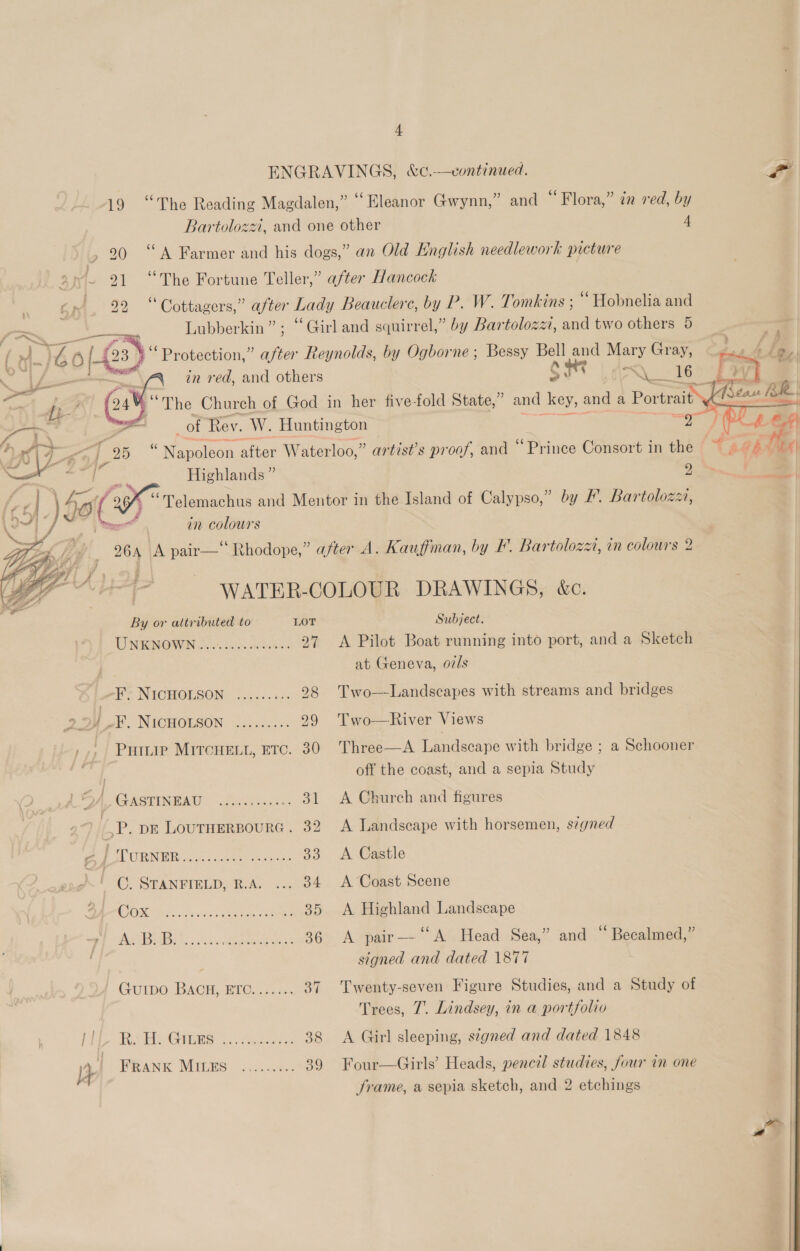 4
ENGRAVINGS, &c.—continued.
19 “The Reading Magdalen,” “Eleanor Gwynn,” and “Flora,” in red, by
Bartolozzi, and one other 4
20 “A Farmer and his dogs,” an Old English needlework picture
21 “The Fortune Teller,” after Hancock
22 “Cottagers,” after Lady Beauclerc, by P. W. Tomkins; “Hobnelia and
Lubberkin”; “Girl and squirrel,” by Bartolozzi, and two others 5
23 “Protection,” after Reynolds, by Ogborne; Bessy Bell and Mary Gray,
in red, and others 16
24 “The Church of God in her five-fold State,” and key, and a Portrait
of Rev. W. Huntington 2
25 “Napoleon after Waterloo,” artist's proof, and “Prince Consort in the
Highlands” 2
26 “Telemachus and Mentor in the Island of Calypso,” by F. Bartolozzi,
in colours
26A A pair—“Rhodope,” after A. Kauffman, by F. Bartolozzi, in colours 2
WATER-COLOUR DRAWINGS, &c.
By or attributed to LOT Subject.
UNKNOWN ............ 27 A Pilot Boat running into port, and a Sketch
at Geneva, oils
F. NICHOLSON ......... 28 Two—Landscapes with streams and bridges
F. NICHOLSON ......... 29 Two—River Views
PHILIP MITCHELL, ETC. 30 Three—A Landscape with bridge; a Schooner
off the coast, and a sepia Study
GASTINEAU ............ 31 A Church and figures
P. DE LOUTHERBOURG. 32 A Landscape with horsemen, signed
TURNER .................. 33 A Castle
C. STANFIELD, R.A. ... 34 A Coast Scene
COX ..................... 35 A Highland Landscape
A. B. B. .................. 36 A pair—“A Head Sea,” and “Becalmed,”
signed and dated 1877
GUIDO BACH, ETC. ...... 37 Twenty-seven Figure Studies, and a Study of
Trees, T. Lindsey, in a portfolio
R. H. GILES ............ 38 A Girl sleeping, signed and dated 1848
FRANK MILES ......... 39 Four—Girls' Heads, pencil studies, four in one
frame, a sepia sketch, and 2 etchings